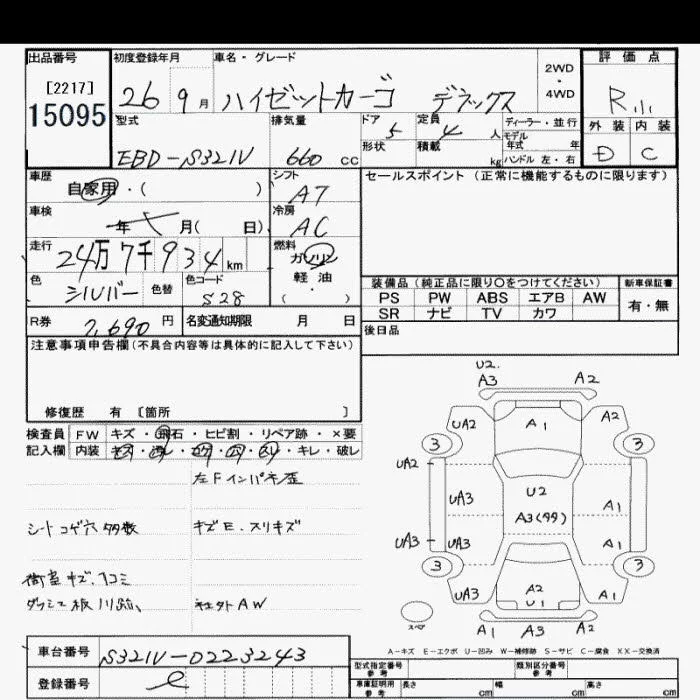 出品番号 初度登録年月 車名・グレード 2WD・4WD 評価点
[2217]
15095
26 9月 ハイゼットカーゴ デラックス R
型式 排気量 ドア 定員 ディーラー・並行 外装 内装
EBD-S321V 660cc 5 4人 モデル年式 年 D C
形状 積載 kg ハンドル 左・右
車歴 シフト セールスポイント（正常に機能するものに限ります）
自家用・( ) A7
車検 冷房
年 月( 日) AC
走行 燃料
24万7千934km ガソリン
色 色替 色コード 軽・油
シルバー S28 ( )
装備品（純正品に限り○をつけてください） 新車保証書
PS PW ABS エアB AW 有・無
SR ナビ TV カワ
R券 7,690円 名変通知期限 月 日 後日品
注意事項申告欄(不具合内容等は具体的に記入して下さい)
修復歴 有 [箇所 ]
検査員 FW キズ・飛石・ヒビ割・リペア跡・×要
記入欄 内装 キズ・汚レ・コゲ・穴・スリ・キレ・破レ
左Fインパネ歪
シートコゲ穴多数 キズE.スリキズ
荷室キズ.凹コミ
AW
U2.
A3 A2
UA2 A1 A2
3 3
UA2
UA3 U2 A1
A3(多々)
UA3 UA3 A1
3 3
UA3 A2 A1
U1
スペア A1 A3 A2
A-キズ E-エクボ U-凹み W-補修跡 S-サビ C-腐食 XX-交換済
車台番号 S321V-0223243
登録番号
型式指定番号 参考 類別区分番号 参考
車庫証明用 参考 長さ cm 幅 cm 高さ cm